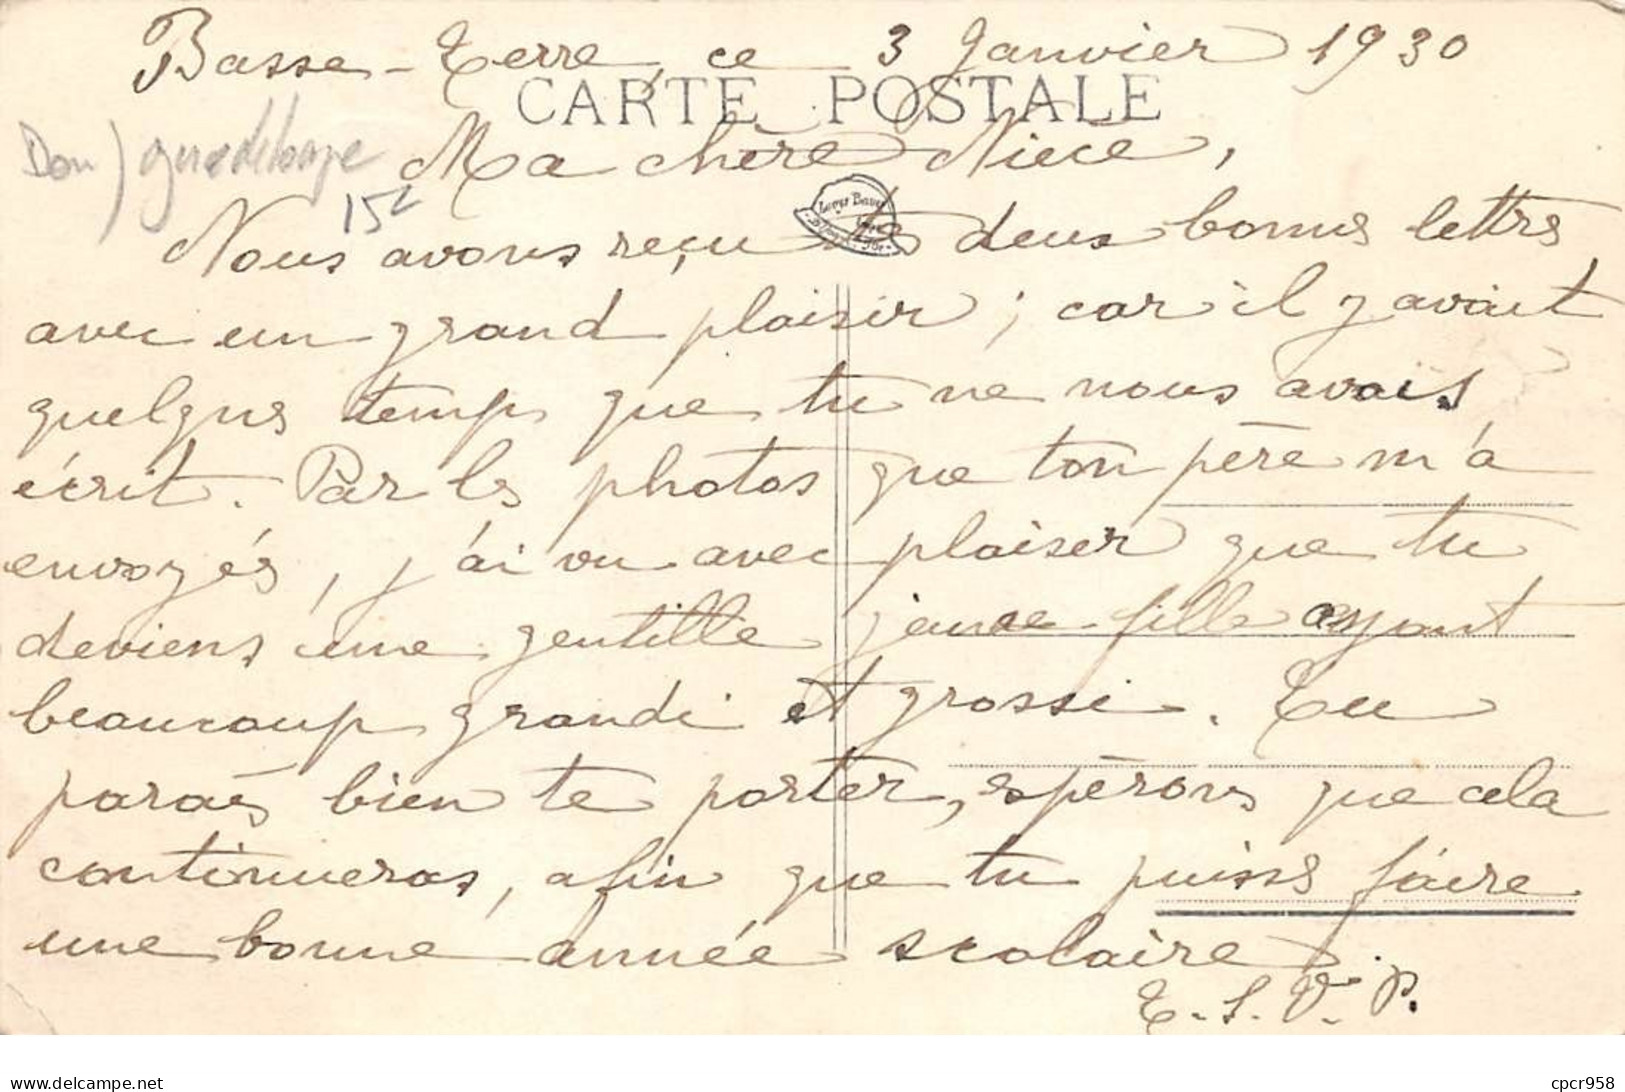 Basse-Terre, ce 3 Janvier 1930
CARTE POSTALE
Dom) guadeloupe
Ma chère Nièce,
15
Nous avons reçu tes deux bonnes lettres
avec un grand plaisir ; car il y avait
quelques temps que tu ne nous avais
écrit. Par les photos que ton père m'a
envoyés, j'ai vu avec plaisir que tu
deviens une gentille jeune fille ayant
beaucoup grandi et grossi. Tu
parais bien te porter, espérons que cela
continueras, afin que tu puisses faire
une bonne année scolaire
T.S.V.P.
delcampe.net
cpcr958